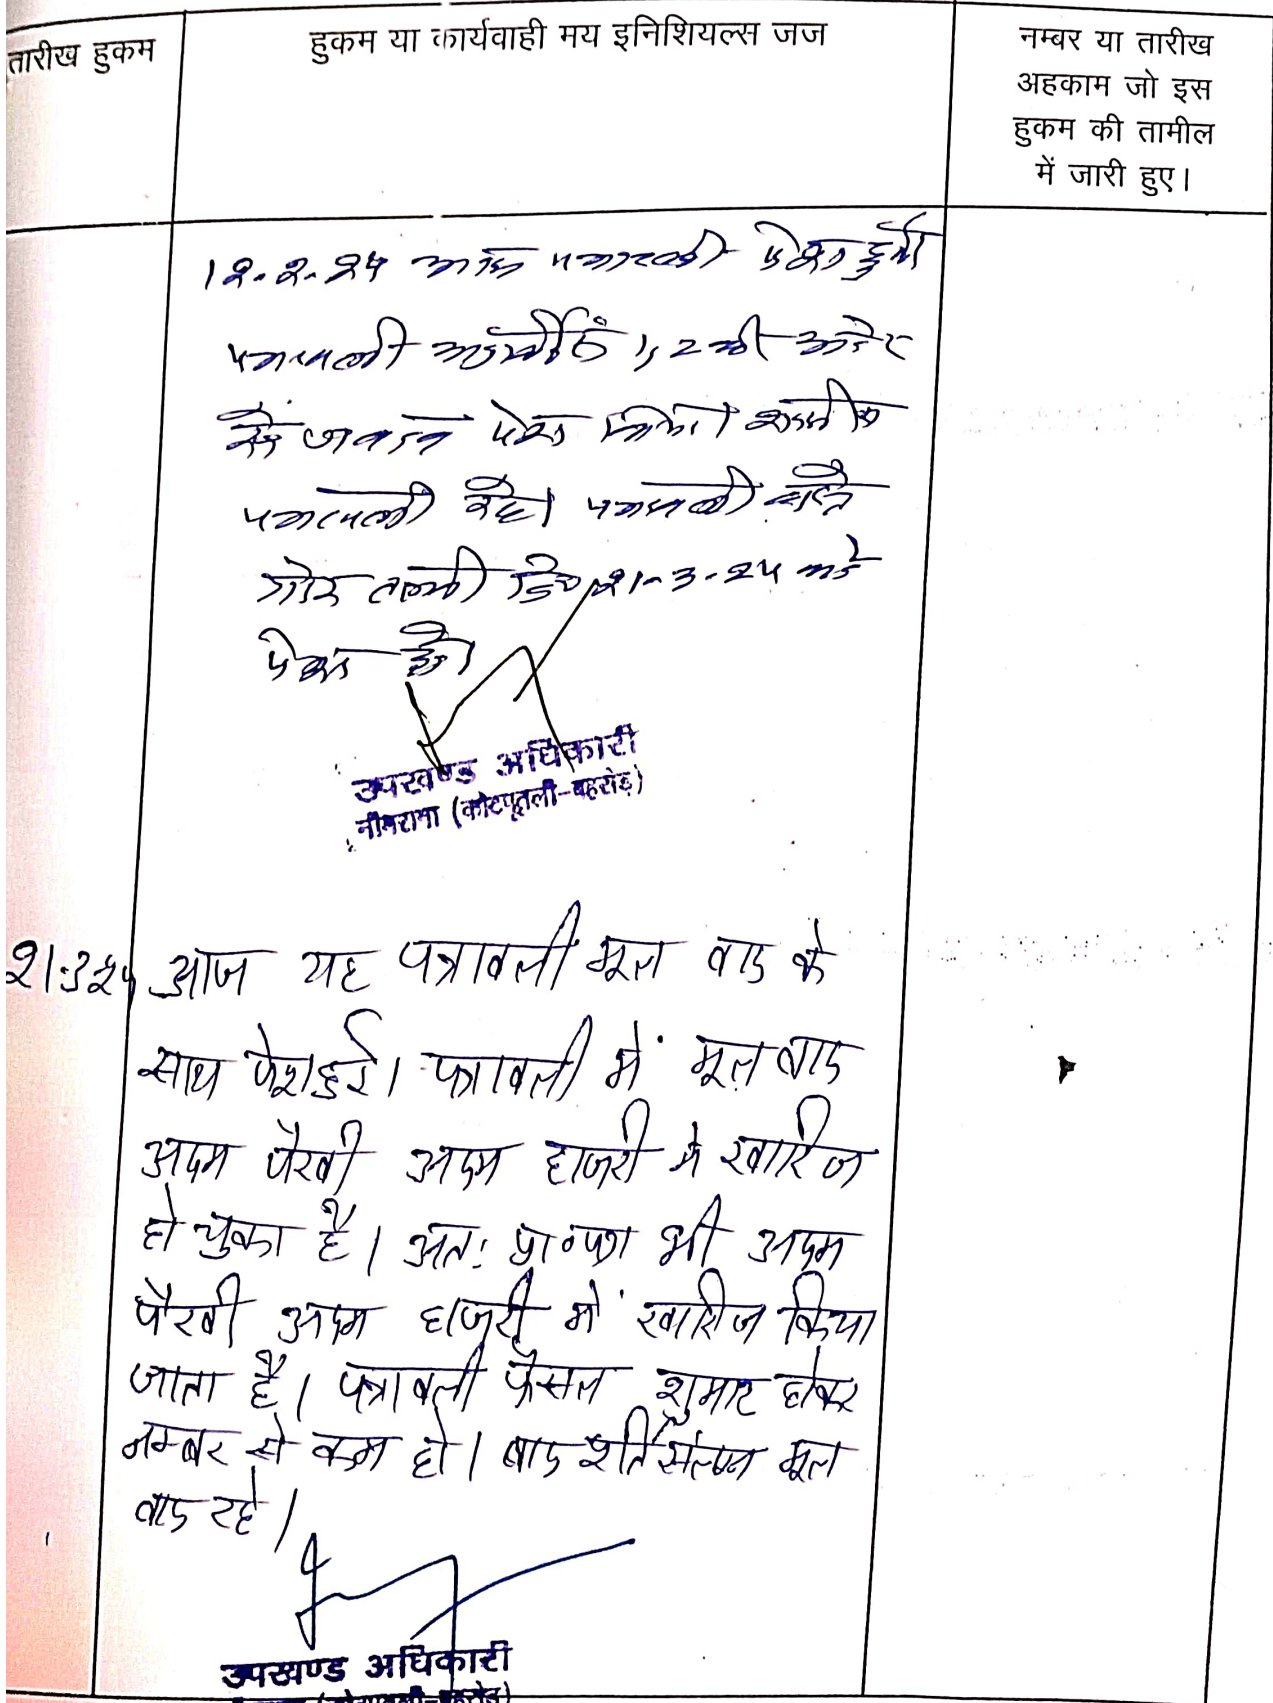 तारीख हुकम
हुकम या कार्यवाही मय इनिशियल्स जज
नम्बर या तारीख
अहकाम जो इस
हुकम की तामील
में जारी हुए।
12-2-25 आज पत्रावली पेश हुई
पत्रावली 1, 2 की ओर
से जवाब पेश किया शामील
पत्रावली रहे। पत्रावली वास्ते
21-3-25 को
पेश हो।
उपखण्ड अधिकारी
नीमराना (कोटपूतली-बहरोड़)
21.3.25 आज यह पत्रावली मूल वाद के
साथ पेश हुई। पत्रावली में मूल वाद
अदम पैरवी अदम हाजरी में खारिज
हो चुका है। अतः प्रा०पत्र भी अदम
पैरवी अदम हाजरी में खारिज किया
जाता है। पत्रावली फैसल शुमार होकर
नम्बर से कम हो। बाद शर्त संलग्न मूल
वाद रहे।
उपखण्ड अधिकारी
(कोटपूतली-बहरोड़)